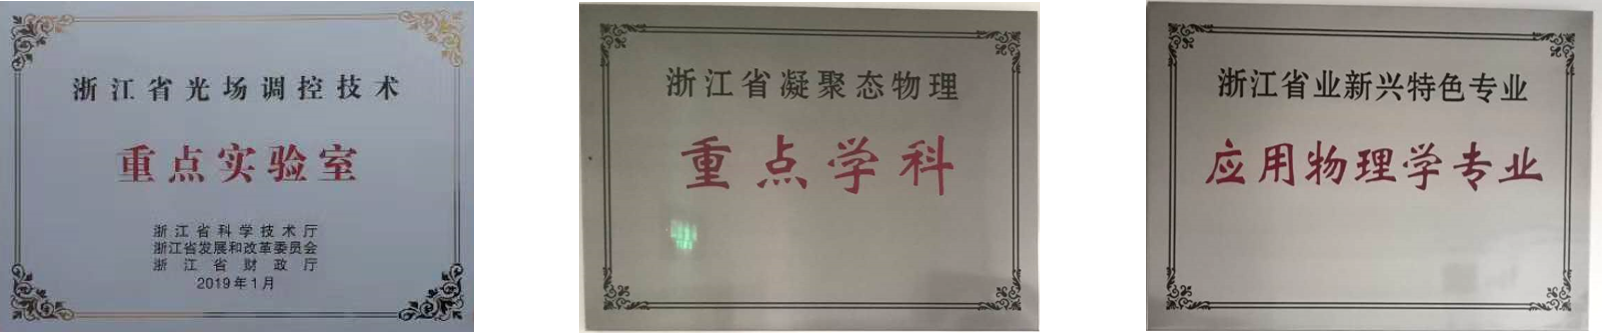 浙江省光场调控技术
重点实验室
浙江省科学技术厅
浙江省发展和改革委员会
浙江省财政厅
2019年1月
浙江省凝聚态物理
重点学科
浙江省业新兴特色专业
应用物理学专业